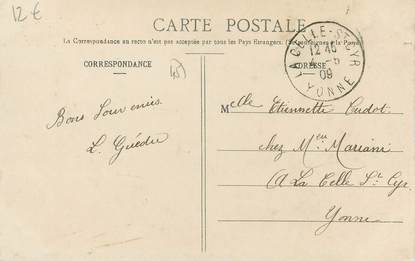 12€
CARTE POSTALE
La Correspondance au recto n'est pas acceptée par tous les Pays Etrangers. (Se renseigner à la Poste)
CORRESPONDANCE
ADRESSE
LA CELLE-ST-CYR
12 40
5
09
YONNE
Bons Souvenirs.
L. Guédu
Melle Etiennette Oudot
chez Mr Mariani
A La Celle St Cyr
Yonne